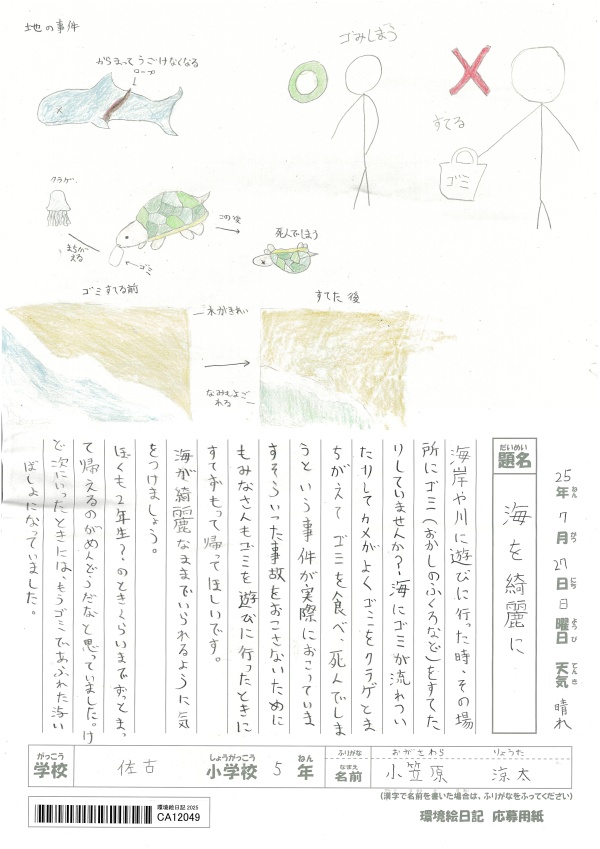 地の事件
からまってうごけなくなる
ロープ
ゴみしまう
すてる
ゴミ
クラゲ
まちがえる
ゴミ
この後
死んでしまう
ゴミすてる前
水がきれい
すてた後
なみもよごれる
25年7月27日日曜日 天気 晴れ
ねん がつ にち ようび てんき
だいめい
題名 海を綺麗に
海岸や川に遊びに行った時、その場
所にゴミ(おかしのふくろなど)をすてた
りしていませんか?海にゴミが流れつい
たりしてカメがよくゴミをクラゲとま
ちがえてゴミを食べ、死んでしま
うという事件が実際におこっていま
すそういった事故をおこさないために
もみなさんもゴミを遊びに行ったときに
すてずもって帰ってほしいです。
海が綺麗なままでいられるように気
をつけましょう。
ぼくも2年生?のときくらいまでずっとまっ
て帰えるのがめんどうだなと思っていました。け
ど次にいったときには、もうゴミであふれた
ばしょになっていました。
がっこう しょうがっこう ねん
学校 佐古 小学校 5年
ふりがな おがさわら りょうた
なまえ
名前 小笠原 涼太
(漢字で名前を書いた場合は、ふりがなをふってください)
環境絵日記 2025
CA12049
環境絵日記 応募用紙